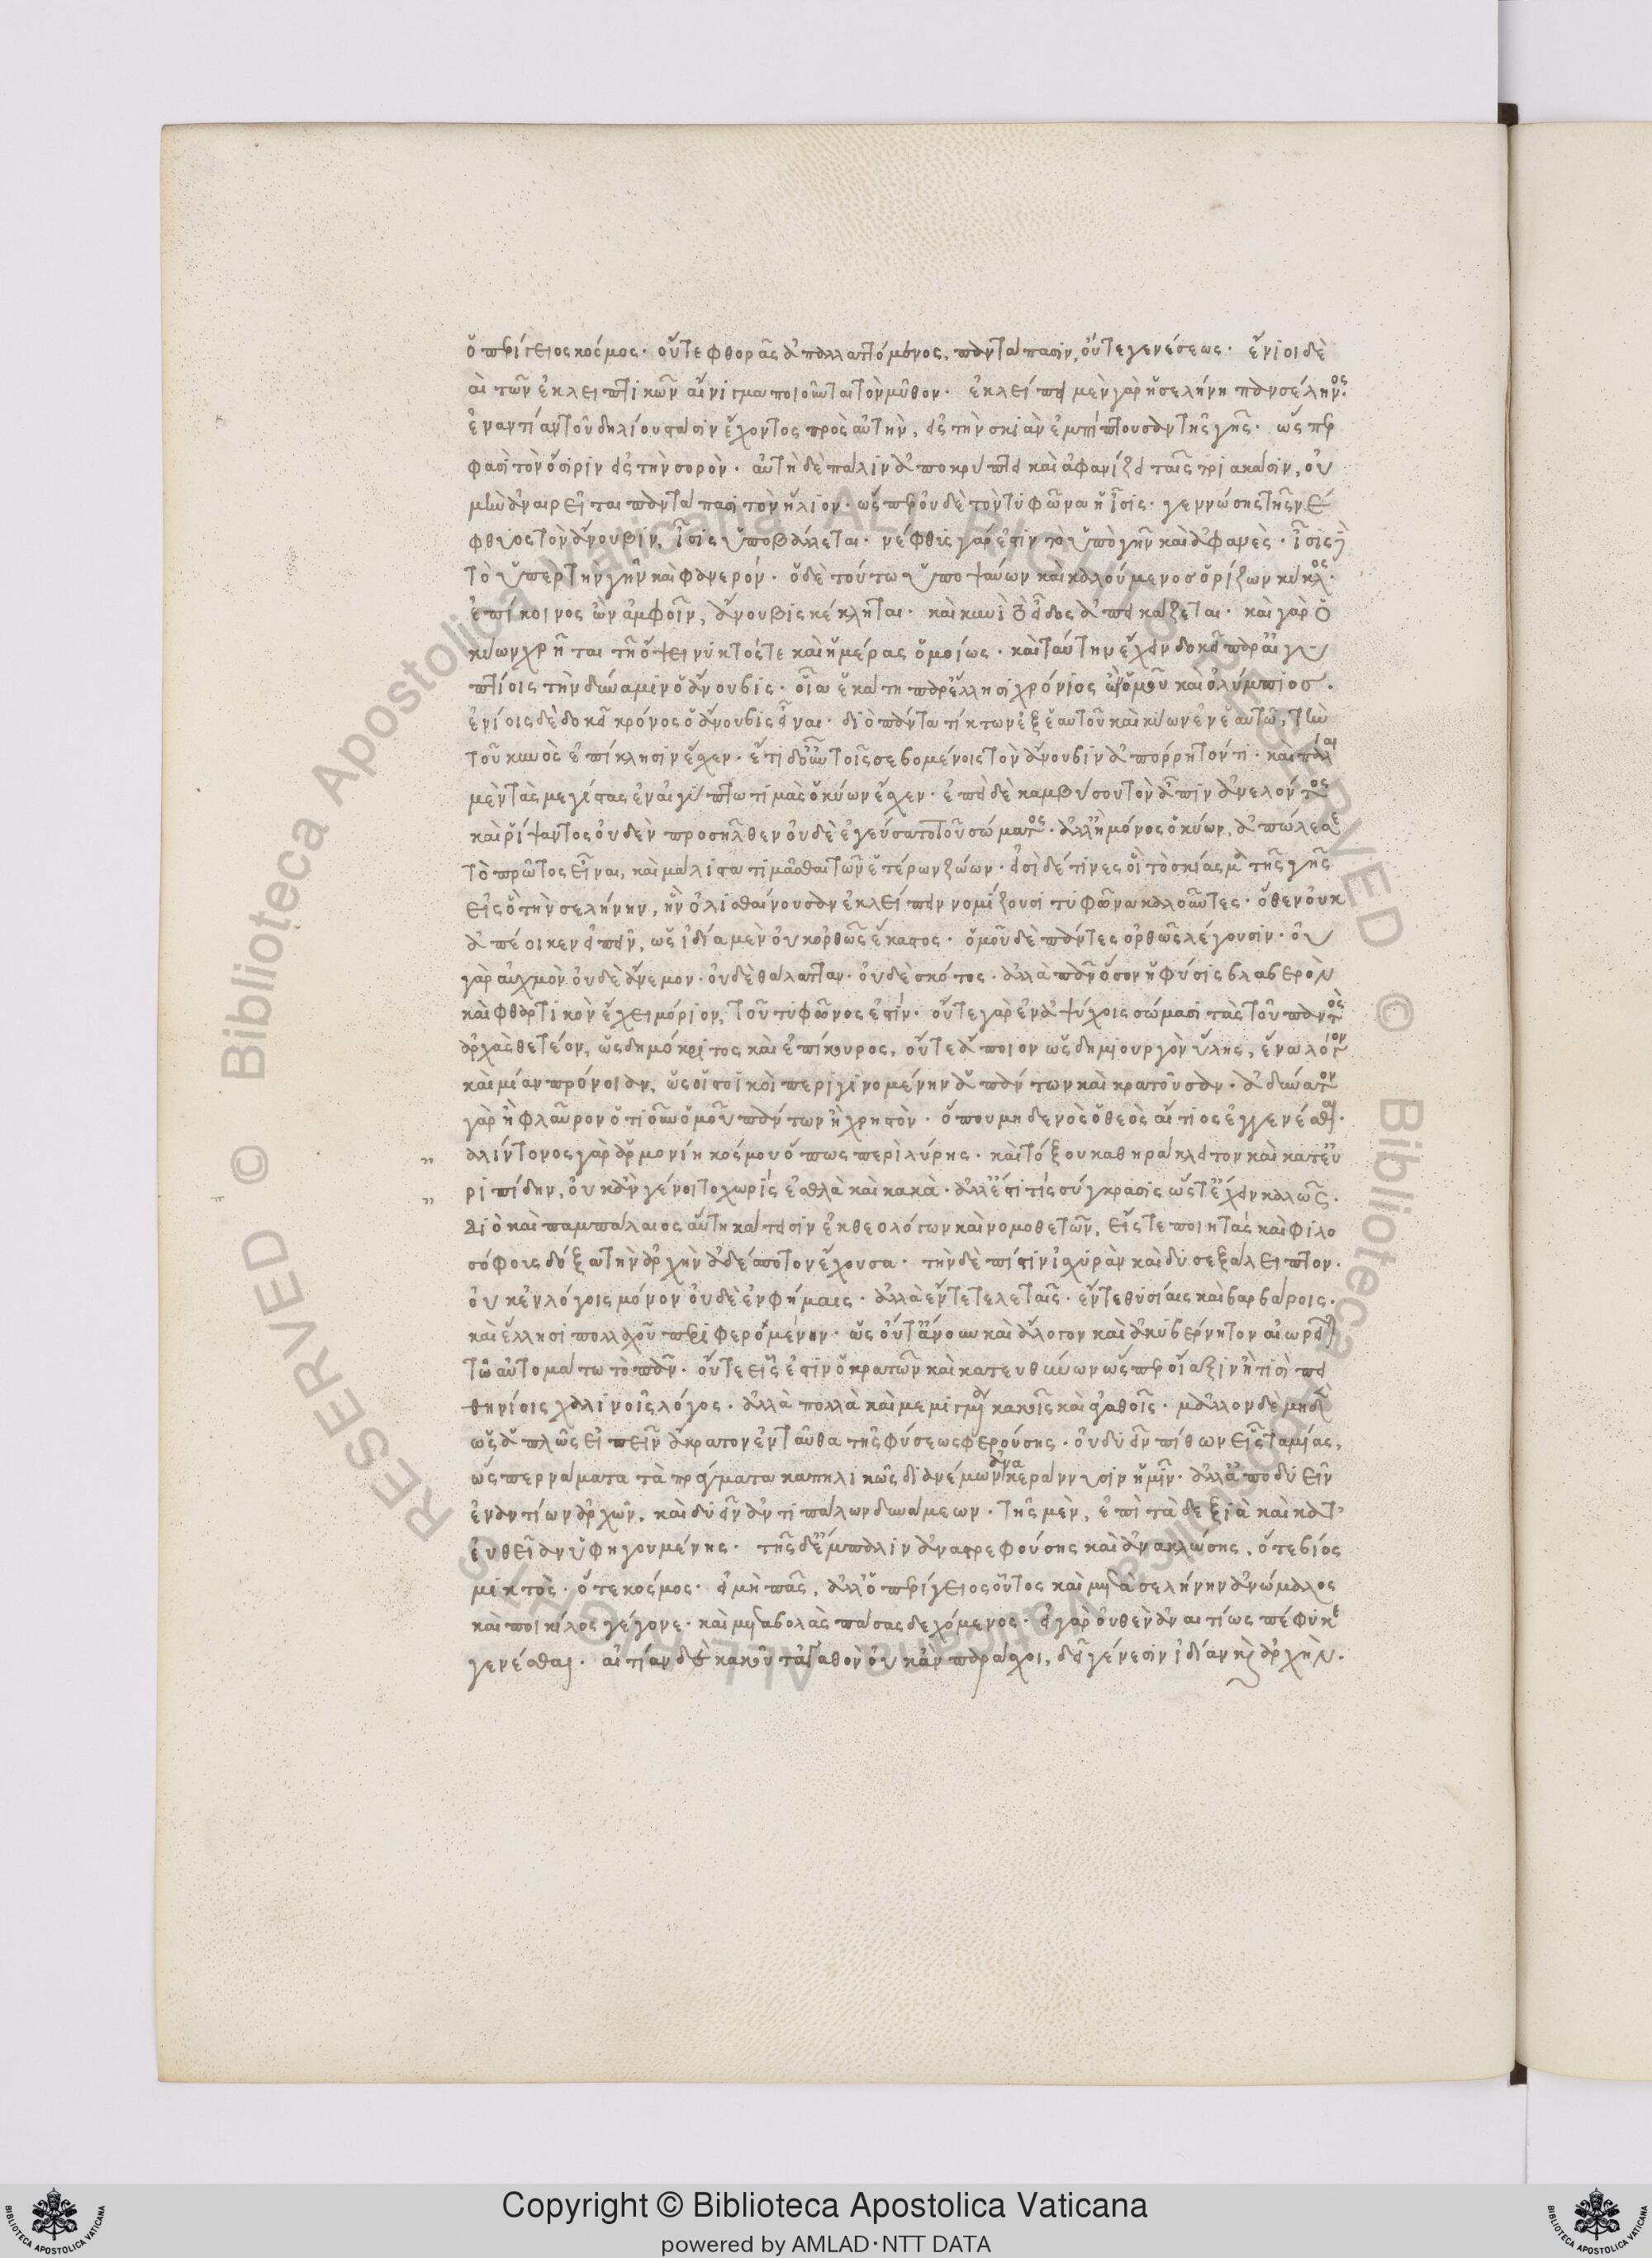 ὁ περίγειος κόσμος· οὔτε φθορᾶς ἀπαλλαττόμενος παντάπασιν, οὔτε γενέσεως· ἔνιοι δὲ
αὶ τῶν ἐκλειπτικῶν αἴνιγμα ποιοῦνται τὸν μῦθον· ἐκλείπει μὲν γὰρ ἡ σελήνη πανσέληνος·
ἐναντίαν τοῦ ἡλίου στάσιν ἔχοντος πρὸς αὐτὴν, εἰς τὴν σκιὰν ἐμπίπτουσαν τῆς γῆς· ὥσπερ
φασὶ τὸν ὄσιριν εἰς τὴν σορὸν· αὐτὴ δὲ πάλιν ἀποκρύπτει καὶ ἀφανίζει ταῖς τριακάσιν, οὐ
μὴν ἀναιρεῖται παντάπασι τὸν ἥλιον· ὥσπερ οὐδὲ τὸν τυφῶνα ἡ ἶσις· γεννώσης τῆς νέ
φθυος τὸν ἄνουβιν, ἶσις ὑποβάλλεται· νέφθυς γάρ ἐστιν τὸ ὑπὸ γῆν καὶ ἀφανὲς· ἶσις δὲ
τὸ ὑπὲρ τὴν γῆν καὶ φανερόν· ὁ δὲ τούτω ὑποψαύων καὶ καλούμενος ὁρίζων κύκλος·
ἐπίκοινος ὢν ἀμφοῖν, ἄνουβις κέκληται· καὶ κυνὶ τὸ εἶδος ἀπεικάζεται· καὶ γὰρ ὁ
κύων χρῆται τῆ ὄψει νυκτός τε καὶ ἡμέρας ὁμοίως· καὶ ταύτην ἔχειν δοκεῖ παρ' αἰγυ
πτίοις τὴν δύναμιν ὁ ἄνουβις· οἵαν ἑκάτη παρ' ἕλλησι χθόνιος ὢν ὁμοῦ καὶ ὀλύμπιος·
ἐνίοις δὲ δοκεῖ κρόνος ὁ ἄνουβις εἶναι· διὸ πάντα τίκτων ἐξ ἑαυτοῦ καὶ κύων ἐν ἑαυτῶ, τὴν
τοῦ κυνὸς ἐπίκλησιν ἔσχεν· ἔστι δ' οὖν τοῖς σεβομένοις τὸν ἄνουβιν ἀπόρρητόν τι· καὶ πάλαι
μὲν τὰς μεγίστας ἐν αἰγύπτω τιμὰς ὁ κύων ἔσχεν· ἐπεὶ δὲ καμβύσου τὸν ἆπιν ἀνελόντος
καὶ ῥίψαντος οὐδὲν προσῆλθεν οὐδὲ ἐγεύσατο τοῦ σώματος· ἀλλ' ἢ μόνος ὁ κύων, ἀπώλεσε
τὸ πρῶτος εἶναι, καὶ μάλιστα τιμᾶσθαι τῶν ἑτέρων ζώων· εἰσὶ δέ τινες οἱ τὸ σκίασμα τῆς γῆς
εἰς ὃ τὴν σελήνην, ἣν ὀλισθαίνουσαν ἐκλείπειν νομίζουσι τυφῶνα καλοῦντες· ὅθεν οὐκ
ἀπέοικεν εἰπεῖν, ὡς ἰδία μὲν οὐκ ὀρθῶς ἕκαστος· ὁμοῦ δὲ πάντες ὀρθῶς λέγουσιν· οὐ
γὰρ αὐχμὸν οὐδὲ ἄνεμον· οὐδὲ θάλατταν· οὐδὲ σκότος· ἀλλὰ πᾶν ὅσον ἡ φύσις βλαβερὸν
καὶ φθαρτικὸν ἔχει μόριον, τοῦ τυφῶνος ἐστίν· οὔτε γὰρ ἐν ἀψύχοις σώμασι τὰς τοῦ παντὸς
ἀρχὰς θετέον, ὡς δημόκριτος καὶ ἐπίκουρος, οὔτε ἀποίου ὡς δημιουργὸν ὕλης, ἕνα λόγον
καὶ μίαν πρόνοιαν, ὡς οἱ στοϊκοὶ περιγινομένην ἁπάντων καὶ κρατοῦσαν· ἀδύνατον
γὰρ ἢ φλαῦρον ὁτιοῦν ὁμοῦ πάντων ἢ χρηστὸν· ὅπου μηδενὸς ὁ θεὸς αἴτιος ἐγγενέσθαι·
" αλίντονος γὰρ ἁρμονίη κόσμου ὅπως περὶ λύρης· καὶ τόξου καθ' ἡράκλειτον καὶ κατ' εὐ
" ριπίδην, οὐκ ἂν γένοιτο χωρίς ἐσθλὰ καὶ κακὰ· ἀλλ' ἔστι τίς σύγκρασις ὥστ' ἔχειν καλῶς·
Διὸ καὶ παμπάλαιος αὕτη κάτεισιν ἐκ θεολόγων καὶ νομοθετῶν, εἴς τε ποιητὰς καὶ φιλο
σόφους δόξα τὴν ἀρχὴν ἀδέσποτον ἔχουσα· τὴν δὲ πίστιν ἰσχυρὰν καὶ δυσεξάλειπτον·
οὐκ ἐν λόγοις μόνον οὐδὲ ἐν φήμαις· ἀλλὰ ἔν τε τελεταῖς· ἔν τε θυσίαις καὶ βαρβάροις·
καὶ ἕλλησι πολλαχοῦ περιφερομένην· ὡς οὔτ' ἄνουν καὶ ἄλογον καὶ ἀκυβέρνητον αἰωρεῖται
τῶ αὐτομάτω τὸ πᾶν· οὔτε εἷς ἐστιν ὁ κρατῶν καὶ κατευθύνων ὥσπερ οἴαξιν ἤ τισι πει
θηνίοις χαλινοῖς λόγος· ἀλλὰ πολλὰ καὶ μεμιγμένα κακοῖς καὶ ἀγαθοῖς· μᾶλλον δὲ μηδὲν
ὡς ἁπλῶς εἰπεῖν ἄκρατον ἐνταῦθα τῆς φύσεως φερούσης· οὐ δυεῖν πίθων εἷς ταμίας,
ὥσπερ νάματα τὰ πράγματα καπηλικῶς διανέμων ἀνακεράννυσιν ἡμῖν· ἀλλ' ἀπὸ δυεῖν
ἐναντίων ἀρχῶν, καὶ δυεῖν ἀντιπάλων δυνάμεων· τῆς μὲν, ἐπὶ τὰ δεξιὰ καὶ κατ'
εὐθεῖαν ὑφηγουμένης· τῆς δ' ἔμπαλιν ἀναστρεφούσης καὶ ἀνακλώσης, ὅ τε βίος
μικτὸς· ὅ τε κόσμος· εἰ μὴ πᾶς, ἀλλ' ὁ περίγειος οὗτος καὶ μετὰ σελήνην ἀνώμαλος
καὶ ποικίλος γέγονε· καὶ μεταβολὰς πάσας δεχόμενος· εἰ γὰρ οὐθὲν ἀναιτίως πέφυκε
γενέσθαι· αἰτίαν δὲ κακοῦ τἀγαθὸν οὐκ ἂν παράσχοι, δεῖ γένεσιν ἰδίαν καὶ ἀρχὴν·
Biblioteca Apostolica Vaticana ALL RIGHTS RESERVED ©
Copyright © Biblioteca Apostolica Vaticana
powered by AMLAD·NTT DATA
BIBLIOTECA APOSTOLICA VATICANA
BIBLIOTECA APOSTOLICA VATICANA